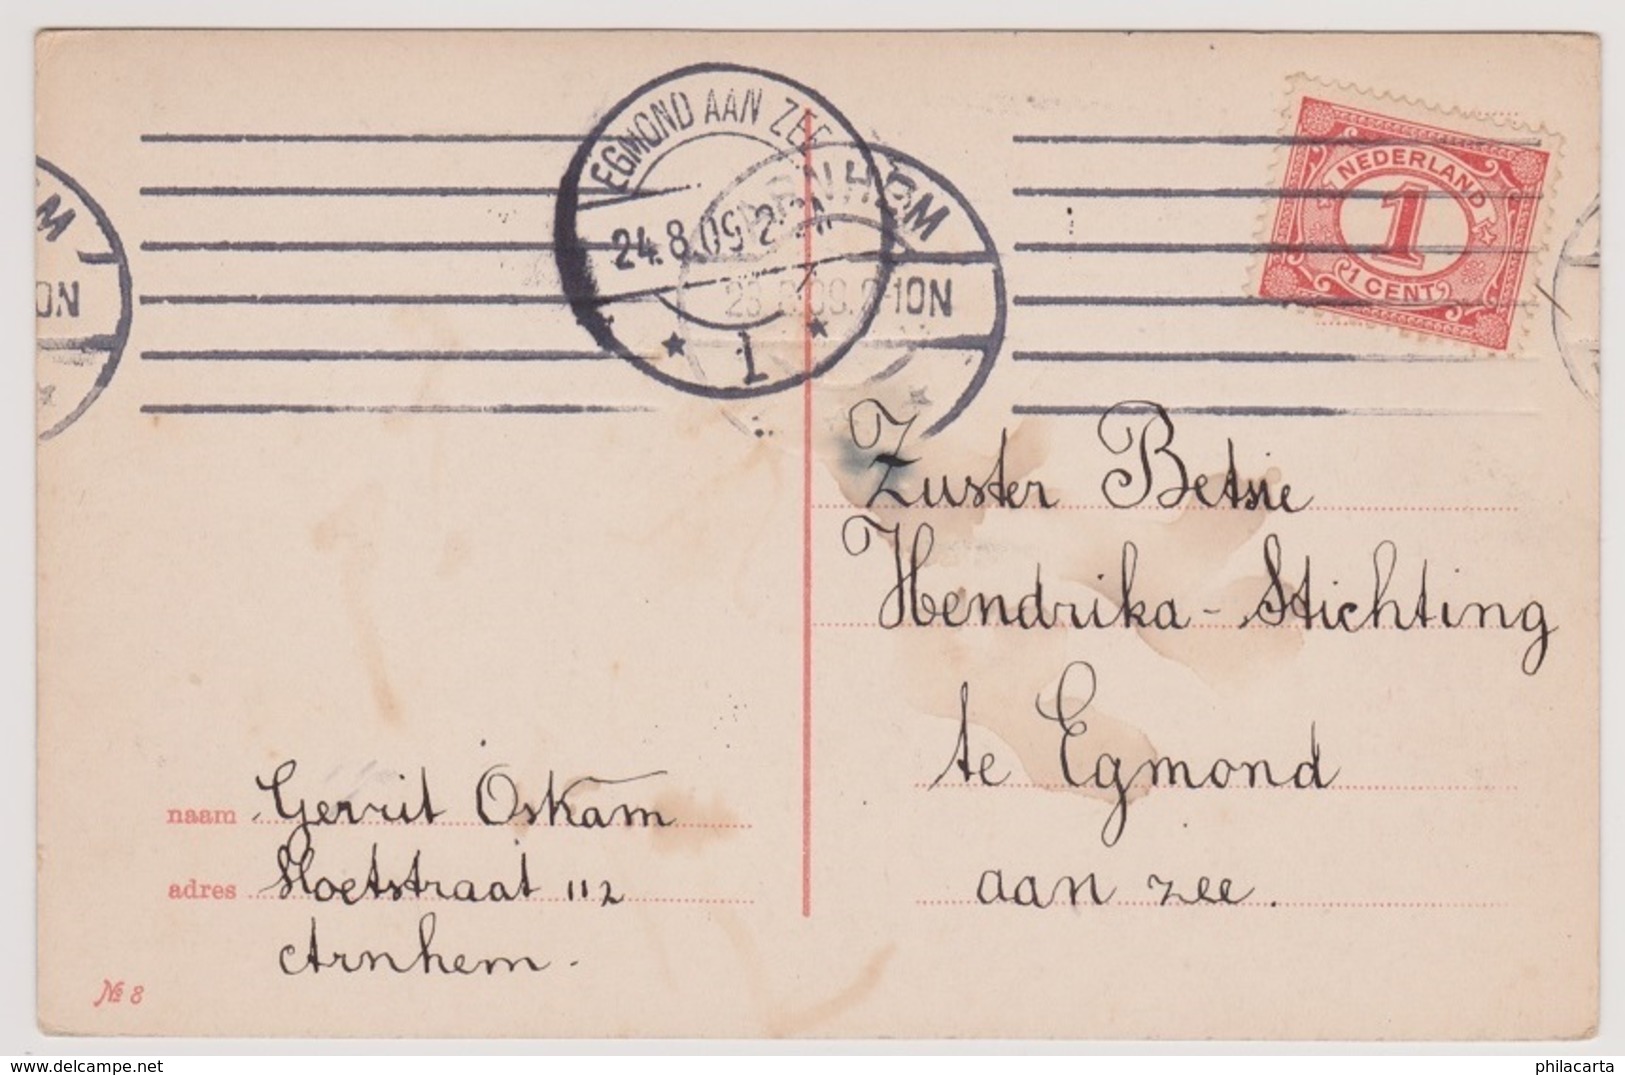 EGMOND AAN ZEE
24.8.09 2
1
ARNHEM
10N
EM
0N
NEDERLAND
1
1 CENT
Zuster Betsie
Hendrika-Stichting
te Egmond
aan zee.
naam Gerrit Oskam
adres Hoetstraat 112
Arnhem.
№ 8
http://www.delcampe.net
philacarta